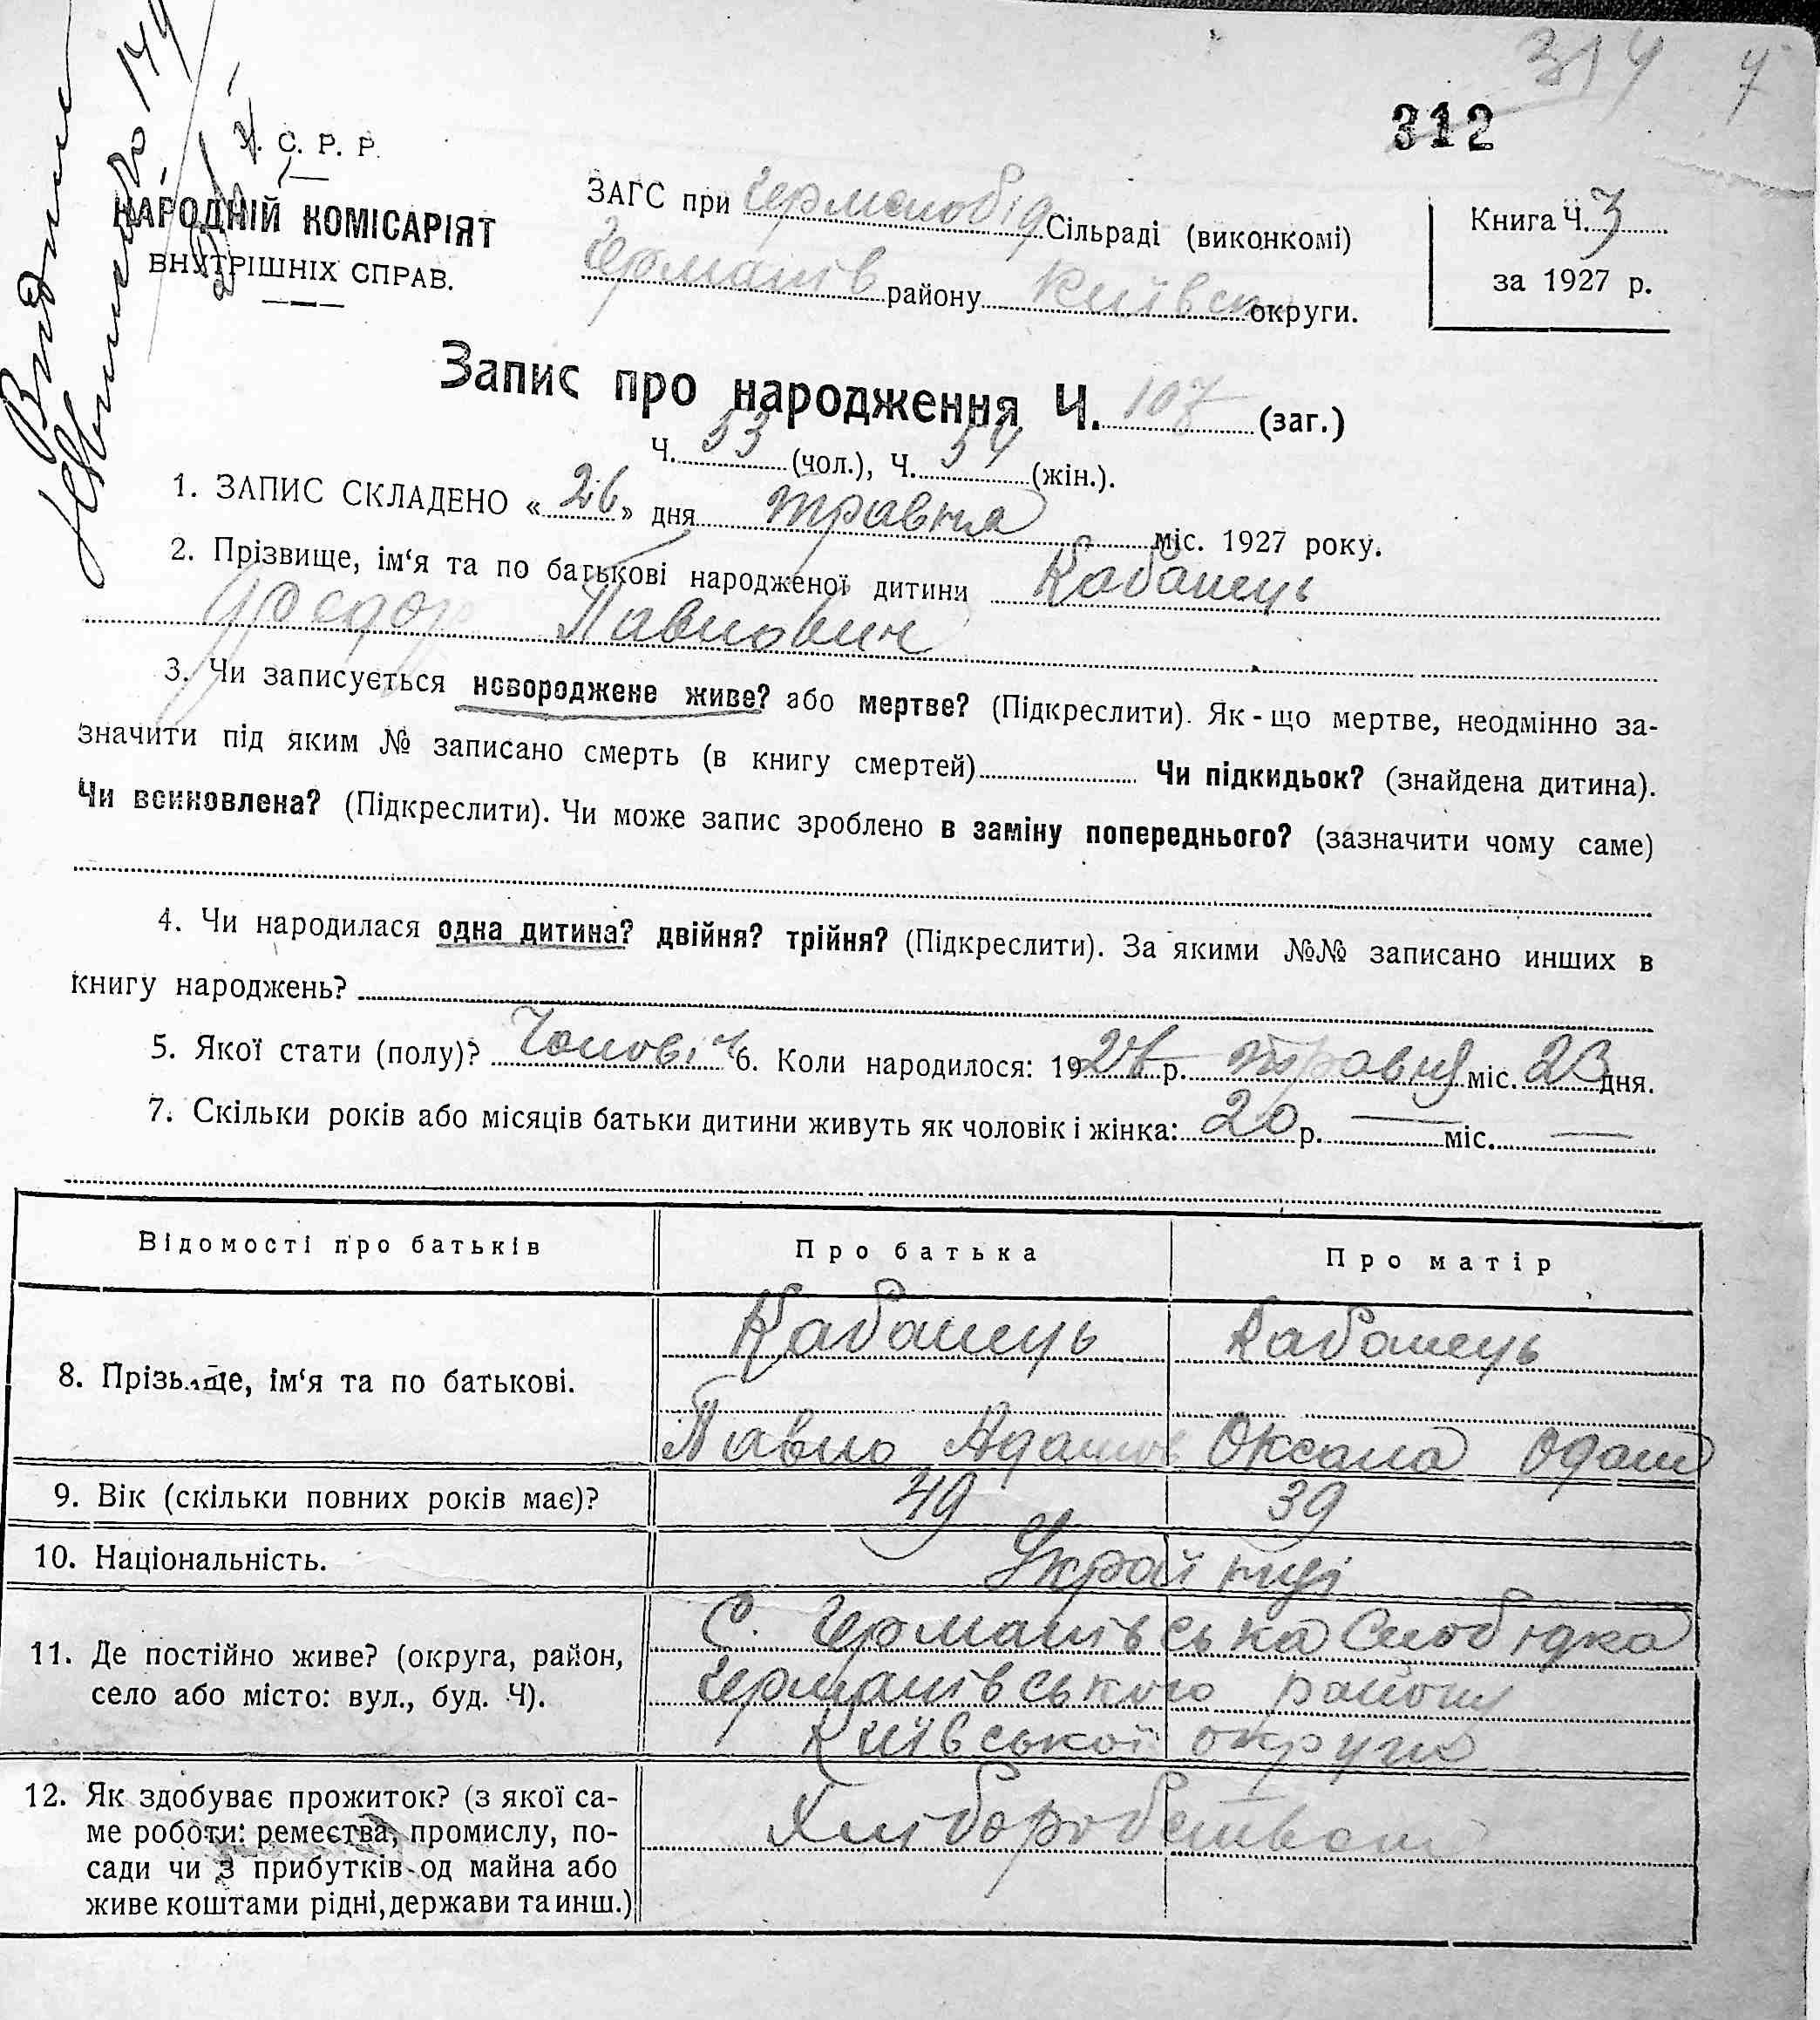 314 4
312
У. С. Р. Р.
НАРОДНІЙ КОМІСАРІЯТ
ВНУТРІШНІХ СПРАВ.
ЗАГС при Германобід Сільраді (виконкомі)
Германів району Київськ округи.
Книга Ч. 3
за 1927 р.
Запис про народження Ч. 107 (заг.)
Ч. 53 (чол.), Ч. 54 (жін.).
1. ЗАПИС СКЛАДЕНО «26» дня травня міс. 1927 року.
2. Прізвище, ім‘я та по батькові народженої дитини Кабанець
Федор Павлович
3. Чи записується новороджене живе? або мертве? (Підкреслити). Як-що мертве, неодмінно за-
значити під яким № записано смерть (в книгу смертей) Чи підкидьок? (знайдена дитина).
Чи всиновлена? (Підкреслити). Чи може запис зроблено в заміну попереднього? (зазначити чому саме)
4. Чи народилася одна дитина? двійня? трійня? (Підкреслити). За якими №№ записано инших в
книгу народжень?
5. Якої стати (полу)? Чоловіч 6. Коли народилося: 19 р. травня міс. 23 дня.
7. Скільки років або місяців батьки дитини живуть як чоловік і жінка: 20 р. — міс. —
Відомості про батьків Про батька Про матір
8. Прізвище, ім‘я та по батькові. Кабанець Кабанець
Павло Адамов Оксана Одам
9. Вік (скільки повних років має)? 49 39
10. Національність. Україїнці
11. Де постійно живе? (округа, район,
село або місто: вул., буд. Ч).
С. Германівська Слобідка
Германівського району
Київської округи
12. Як здобуває прожиток? (з якої са-
ме роботи: ремества, промислу, по-
сади чи з прибутків од майна або
живе коштами рідні, держави та инш.)
Хліборобством